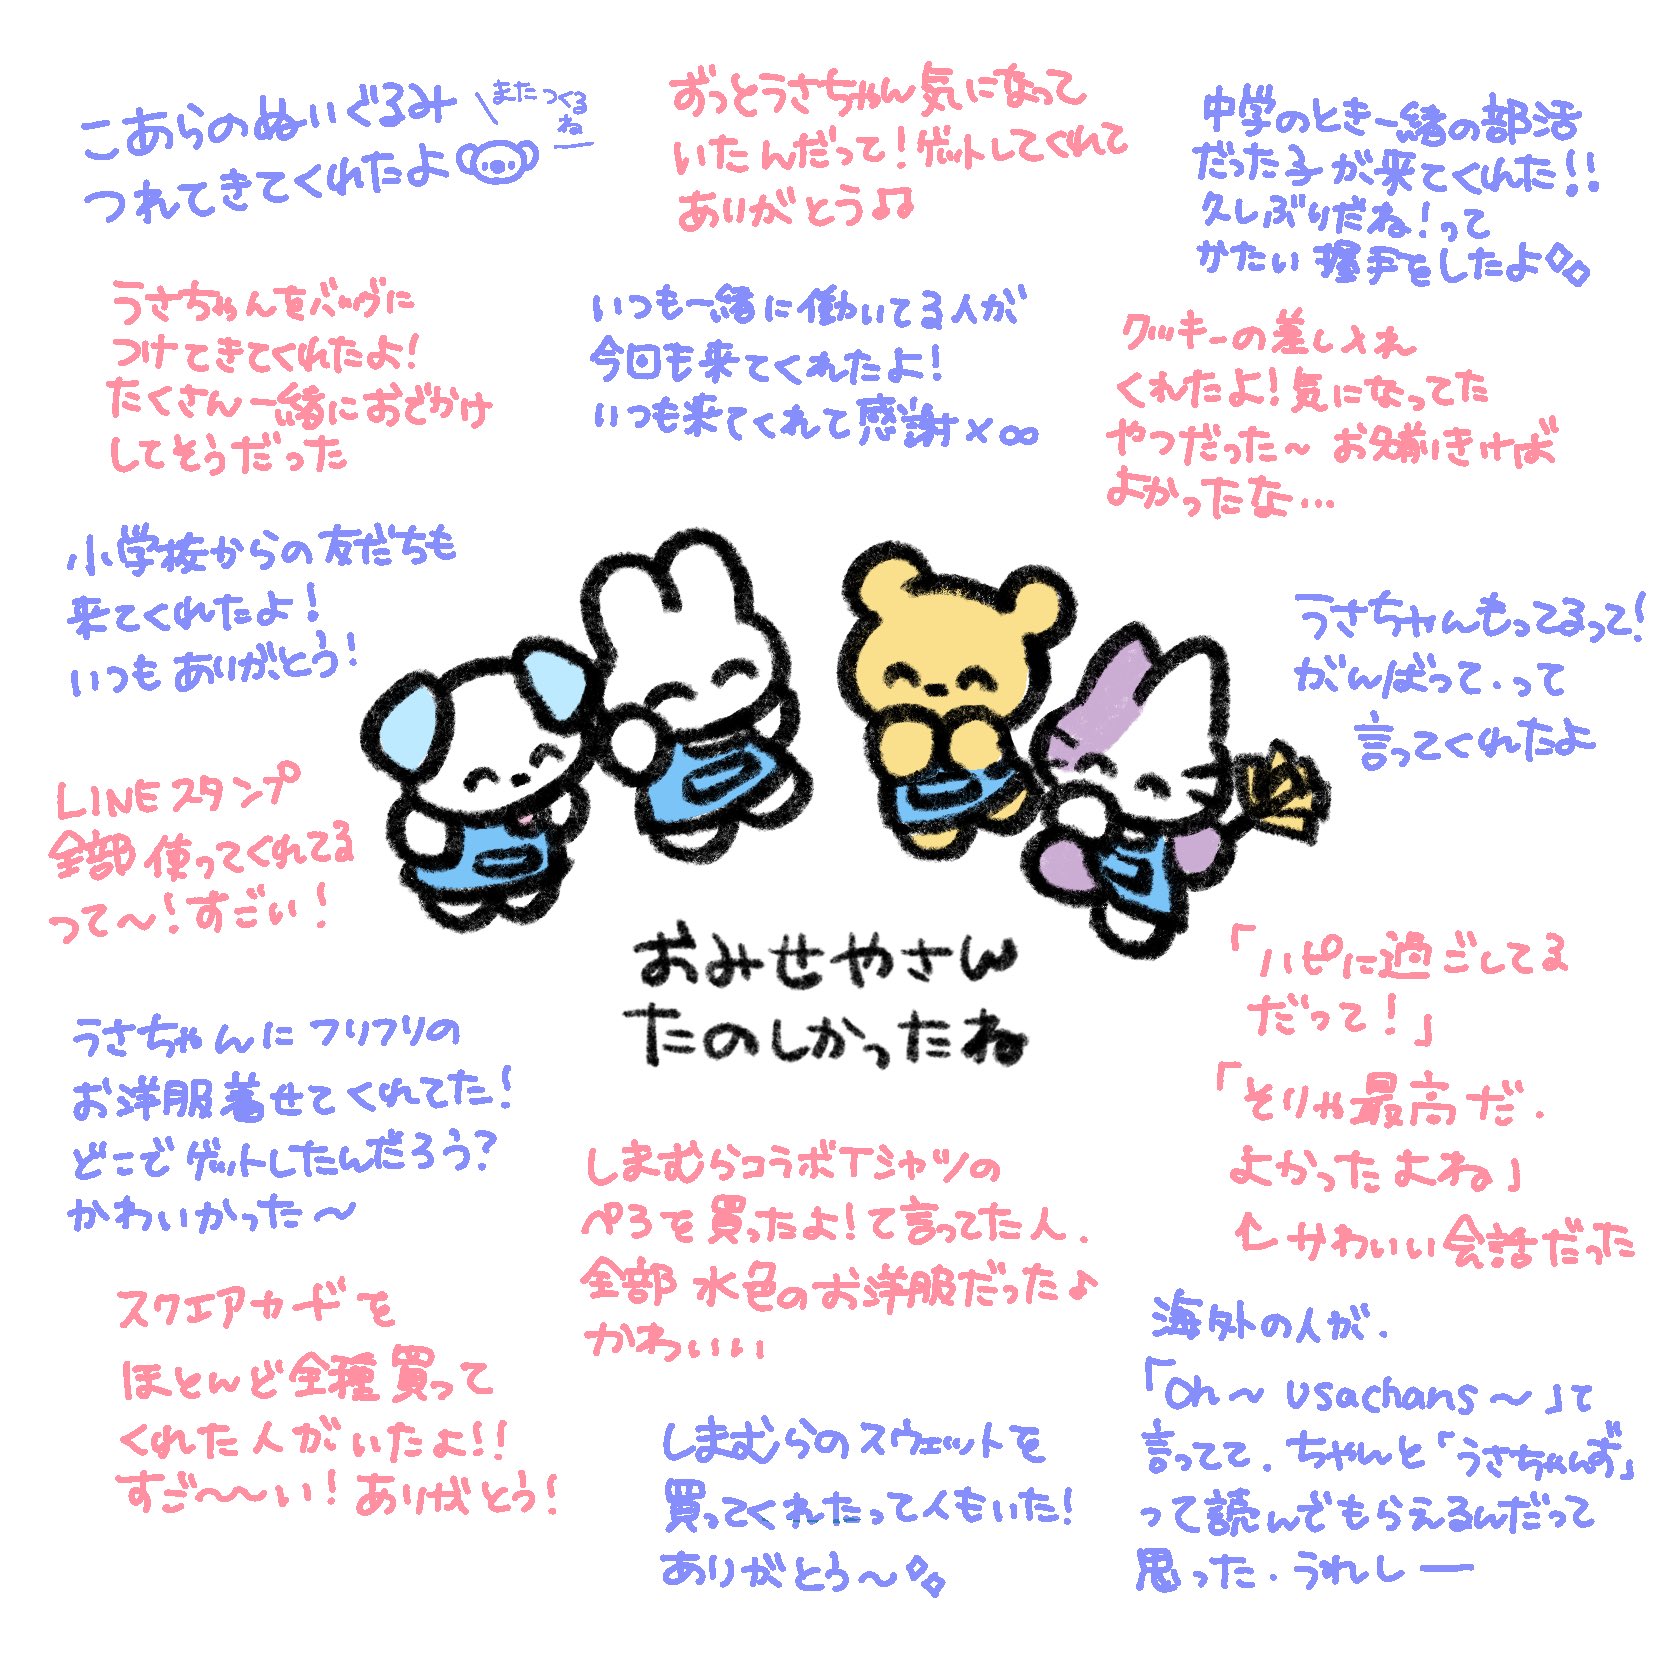 こあらのぬいぐるみ
つれてきてくれたよ
またつくる
ね
ずっとうさちゃん気になって
いたんだって！ゲットしてくれて
ありがとう♫
中学のとき一緒の部活
だった子が来てくれた!!
久しぶりだね！って
かたい握手をしたよ
うさちゃんをバッグに
つけてきてくれたよ！
たくさん一緒におでかけ
してそうだった
いつも一緒に働いてる人が
今回も来てくれたよ！
いつも来てくれて感謝×∞
クッキーの差し入れ
くれたよ！気になってた
やつだった〜お名前きけば
よかったな…
小学校からの友だちも
来てくれたよ！
いつもありがとう！
うさちゃんもってるって！
がんばって.って
言ってくれたよ
LINEスタンプ
全部使ってくれてる
って〜！すごい！
おみせやさん
たのしかったね
「ハピに過ごしてる
だって！」
「そりゃ最高だ.
よかったよね」
↑かわいい会話だった
うさちゃんにフリフリの
お洋服着せてくれてた！
どこでゲットしたんだろう？
かわいかった〜
しまむらコラボTシャツの
ぺろを買ったよ！て言ってた人.
全部水色のお洋服だった♪
かわいい
スクエアカードを
ほとんど全種買って
くれた人がいたよ!!
すご〜〜い！ありがとう！
しまむらのスウェットを
買ってくれたって人もいた！
ありがとう〜
海外の人が.
「Oh〜usachans〜」て
言ってて.ちゃんと「うさちゃんず」
って読んでもらえるんだって
思った.うれしー